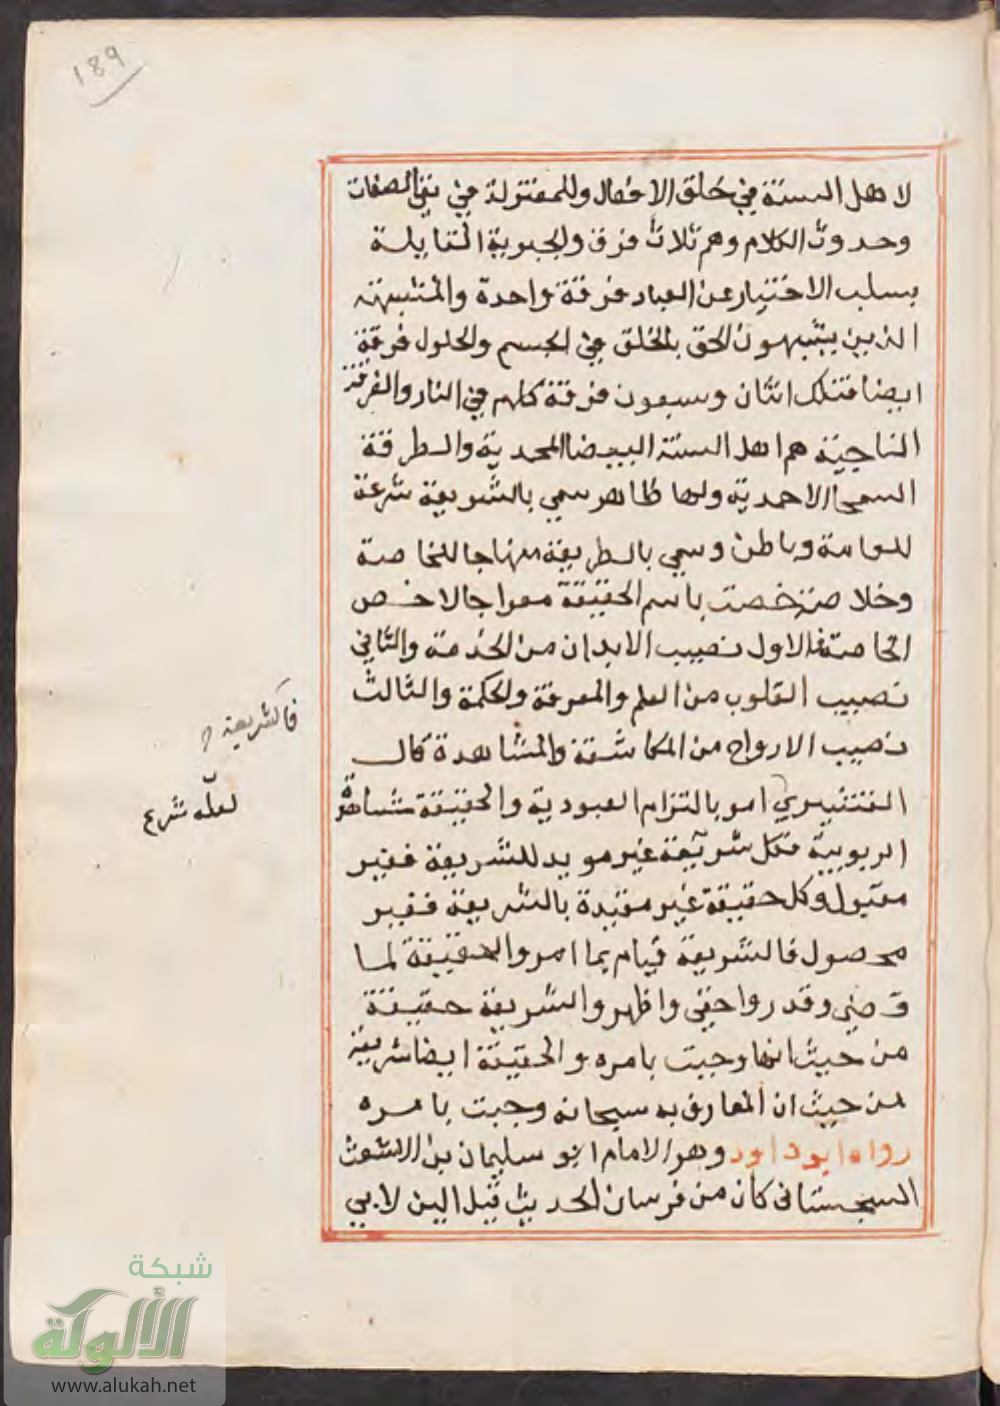 189
لاهل السنة في خلق الافعال وللمعتزلة في نفي الصفات
وحدوث الكلام وهم ثلاث فرق والجبرية القايلة
بسلب الاختيار عن العباد فرقة واحدة والمشبهة
الذين يشبهون الحق بالخلق في الجسم والحلول فرقة
ايضا فتلك اثنان وسبعون فرقة كلهم في النار والفرقة
الناجية هم اهل السنة البيضا المحمدية والطرقة
السمحا الاحمدية ولها ظاهر سمي بالشريعة شرعة
للعامة وباطن وسمي بالطريقة منهاجا للخاصة
وخلاصة خصت باسم الحقيقة معراجا لاخص
الخاصة فالاول نصيب الابدان من الخدمة والثاني
نصيب القلوب من العلم والمعرفة والحكمة والثالث
نصيب الارواح من المكاشفة والمشاهدة قال
القشيري امر بالتزام العبودية والحقيقة مشاهدة
الربوبية فكل شريعة غير مويد للشريعة فغير
مقبول وكل حقيقة غير مقيدة بالشريعة فغير
محصول فالشريعة قيام بما امر والحقيقة لما
قضي وقدر واخفي واظهر والشريعة حقيقة
من حيث انها وجبت بامره والحقيقة ايضا شريعة
من حيث ان المعارف به سبحانه وجبت بامره
رواه ابو داود وهو الامام ابو سليمان بن الاشعث
السجستاني كان من فرسان الحديث قيل الين لابي
فالشريعة
لعله شرع
شبكة
الألوكة
www.alukah.net